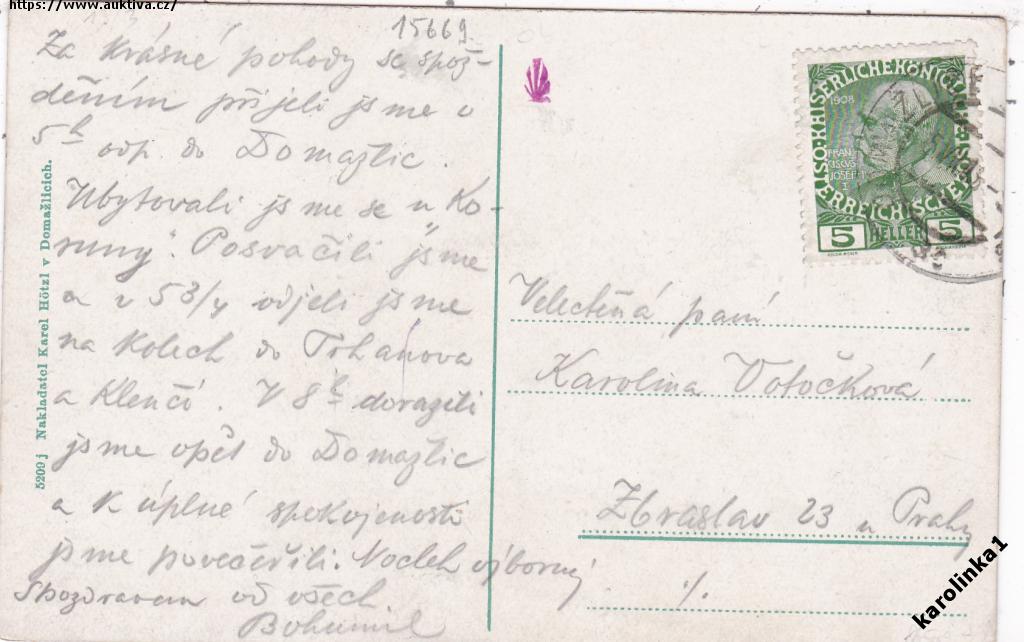 https://www.auktiva.cz/
15669
Za krásné pohody se spož-
děním přijeli jsme v
5h odp. do Domažlic.
Ubytovali jsme se u „Ko-
runy". Posvačili jsme
a v 5 3/4 odjeli jsme
na kolech do Trhanova
a Klenčí. V 8h dorazili
jsme opět do Domažlic
a k úplné spokojenosti
jsme povečeřili. Nocleh výborný
S pozdravem od všech
Bohumil
5209 j Nakladatel Karel Hötzl v Domažlicích.
KAISERLICHE KÖNIGLICHE
ÖSTERREICHISCHE
1908
FRAN
CISCUS
JOSEF I
5 HELLER 5
Velectěná paní
Karolina Votočková
Zbraslav 23 u Prahy
./.
karolinka1